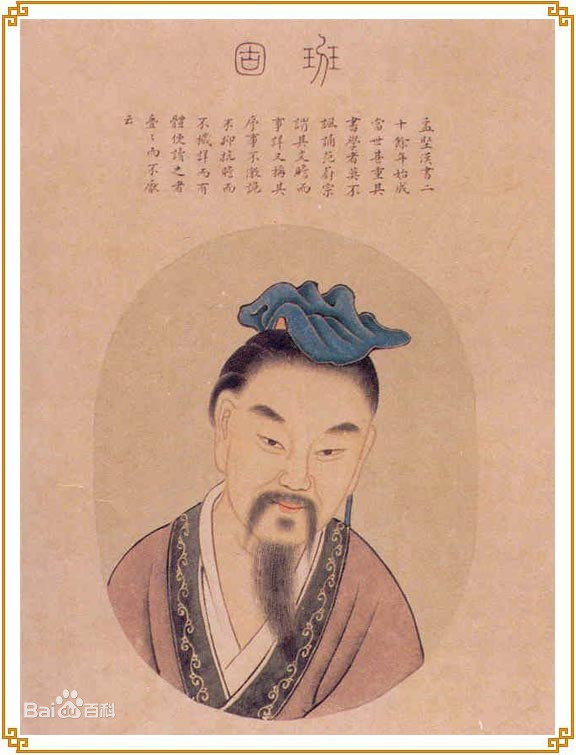 班固
孟堅漢書二
十餘年始成
當世甚重其
書學者莫不
諷誦范蔚宗
謂其文贍而
事詳又稱其
序事不激詭
不抑抗贍而
不穢詳而有
體使讀之者
亹〻而不厭
云
Baidu百科